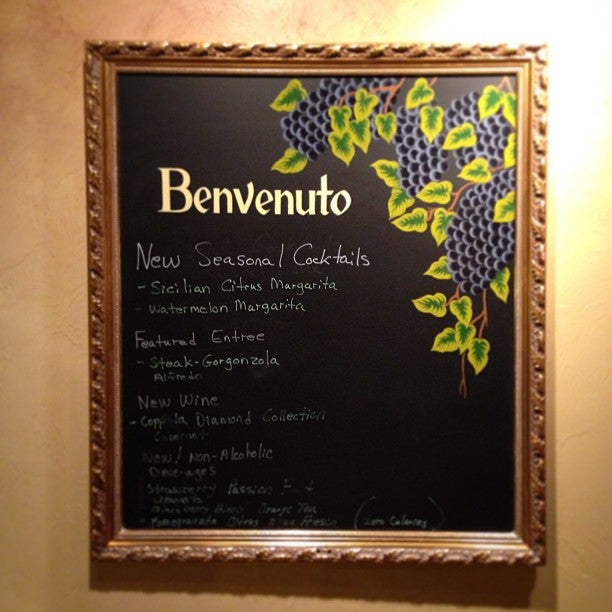 Benvenuto
New Seasonal Cocktails
- Sicilian Citrus Margarita
- Watermelon Margarita
Featured Entree
- Steak-Gorgonzola
Alfredo
New Wine
- Coppola Diamond Collection
Cabernet
New! Non-Alcoholic
Beverages
Strawberry Passion Fruit
Limonata
Orange Tea
- Pomegranate Citrus Fresco (Zero Calories)